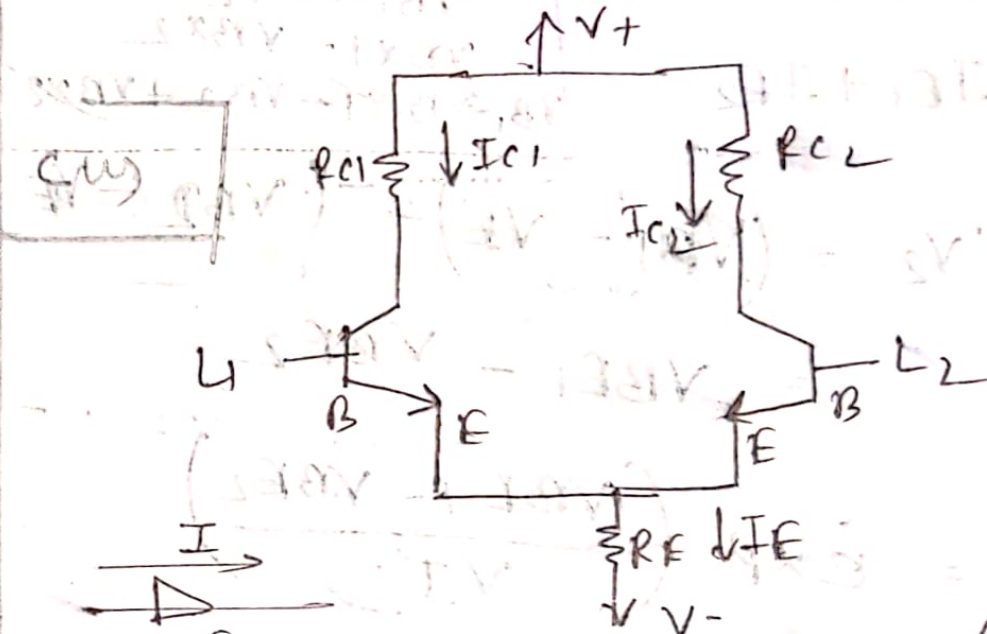 V+
RC1
IC1
RC2
IC2
L1
B
E
L2
B
E
RE
IE
V-
I